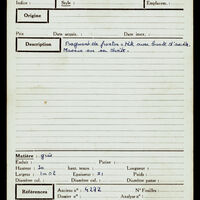 Indice : Style : Emplacem. :
Origine
Prix Date acquis. : Date inv. :
Description Fragment de fronton : tête avec buste d'aigle.
Matière : grès
Enduit : Patine :
Hauteur : haut. tenon : Longueur :
Largeur : 1m02 Epaisseur : 21 Poids :
Diamètre col. : Diamètre col. : Diamètre panse :
Références Ancien n° : 4272 N° Fouilles :
Dossier n° : Analyse n° :